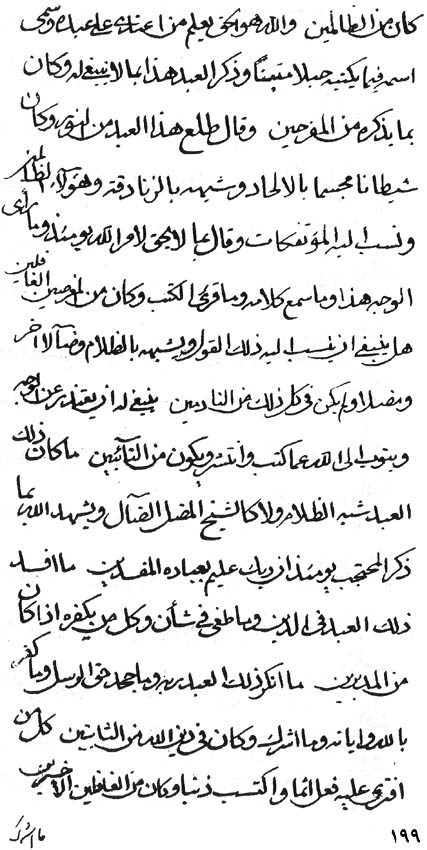 كان من الظالمين والله هو الحق يعلم من اعتدى على عباده وسمى
اسمه فيما يكتبه جبلا متينًا وذكر العبد هذا بما لا ينبغى له وكان
بما يذكره من المفرحين وقال طلع هذا العبد من النور وكان
شيطانا مجسما بالالحاد وشبهه بالزنادقة وهؤلآء الظالمين
ونسب اليه المؤتفكات وقال عما لا يحق لامر الله يومئذ وما رأى
الوجه هذا وما سمع كلامه وما قرئ الكتب وكان من المفرحين الغافلين
هل ينبغى ان ينسب اليه ذلك القول ويشبهه بالظلام وضآلا آخر
ومضلا ولم يكن فى كل ذلك من النادمين ينبغى له ان يعتذر عن الوجه
ويتوب الى الله عما كتب وانتشر ويكون من التآئبين ما كان ذلك
العبد شبه الظلام ولا كالشيخ المضل الضآل ويشهد الله بما
ذكر المحتجب يومئذ ان ربك عليم بعباده المفسدين ما افسد
ذلك العبد فى الدين وما طغى فى شأن وكل من يكفره اذا كان
من المدبرين ما انكر ذلك العبد ربه وما جحد حق الرسل وما كفر
بالله واياته وما اشرك وكان فى دين الله من الثابتين كل من
افترى عليه فعل اثما واكتسب ذنبا وكان من الغافلين الآخرين
١٩٩ ما اشرك